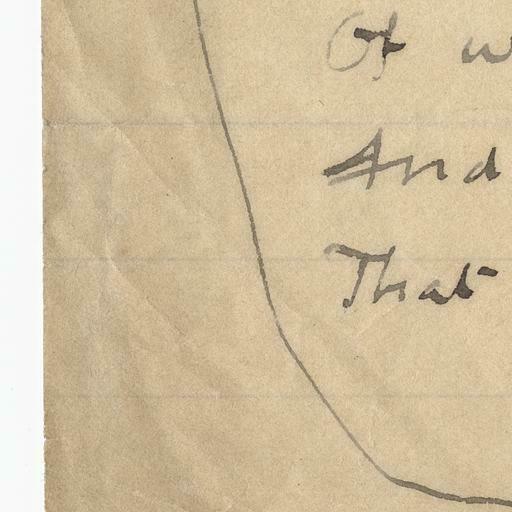 Of
And
That